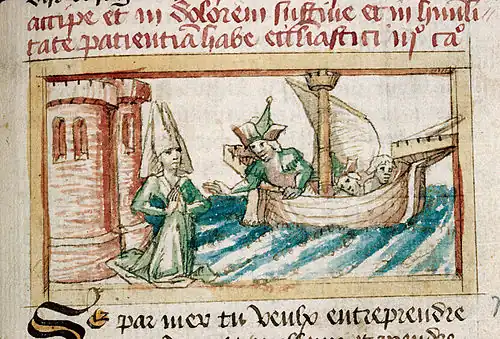 accipe et in dolorem sustine et in humili
tate patientiā habe ecclesiastici ijº caº
Se par mer tu veulx entreprendre